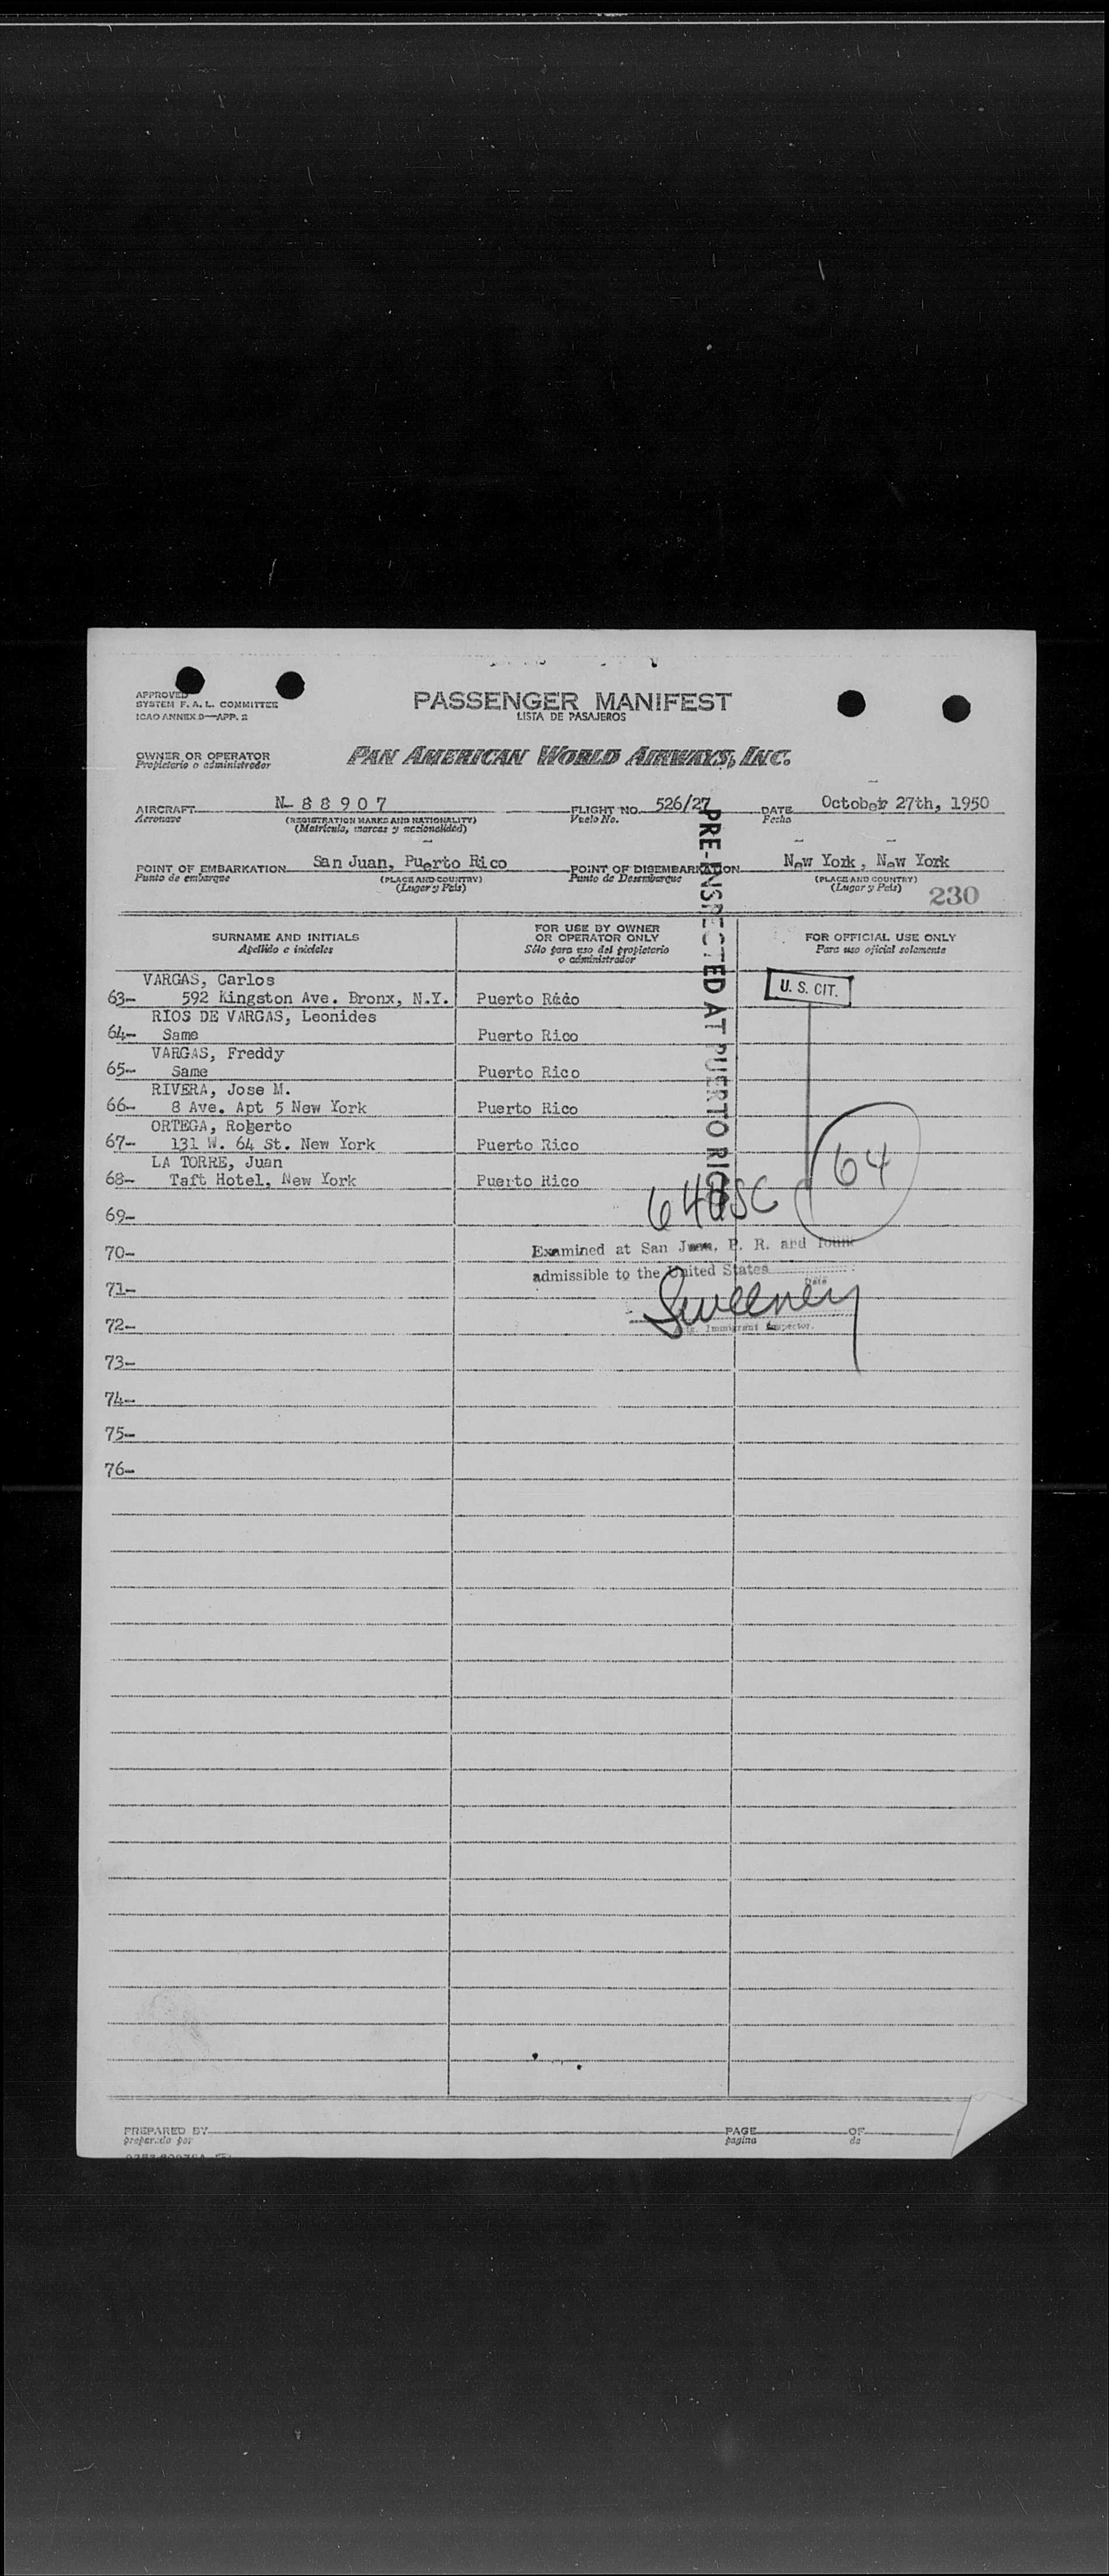 APPROVED
SYSTEM F. A. L. COMMITTEE
ICAO ANNEX 9—APP. 2
PASSENGER MANIFEST
LISTA DE PASAJEROS
OWNER OR OPERATOR
Propietario o administrador
PAN AMERICAN WORLD AIRWAYS, INC.
AIRCRAFT N- 8 8 9 0 7 FLIGHT NO. 526/27 DATE October 27th, 1950
Aeronave (REGISTRATION MARKS AND NATIONALITY) Vuelo No. Fecha
(Matrícula, marcas y nacionalidad)
POINT OF EMBARKATION San Juan, Puerto Rico POINT OF DISEMBARKATION New York, New York
Punto de embarque (PLACE AND COUNTRY) Punto de Desembarque (PLACE AND COUNTRY)
(Lugar y País) (Lugar y País)
230
PRE-INSPECTED AT PUERTO RICO
SURNAME AND INITIALS FOR USE BY OWNER OR OPERATOR ONLY FOR OFFICIAL USE ONLY
Apellido e iniciales Sólo para uso del propietario o administrador Para uso oficial solamente
VARGAS, Carlos
63- 592 Kingston Ave. Bronx, N.Y. Puerto Rico U. S. CIT.
RIOS DE VARGAS, Leonides
64- Same Puerto Rico
VARGAS, Freddy
65- Same Puerto Rico
RIVERA, Jose M.
66- 8 Ave. Apt 5 New York Puerto Rico
ORTEGA, Roberto
67- 131 W. 64 St. New York Puerto Rico
LA TORRE, Juan
68- Taft Hotel, New York Puerto Rico
64
64 USC
69-
70- Examined at San Juan, P. R. and found
admissible to the United States
Date
71-
Sweeney
72- Immigrant Inspector.
73-
74-
75-
76-
PREPARED BY PAGE OF
preparado por pagina de